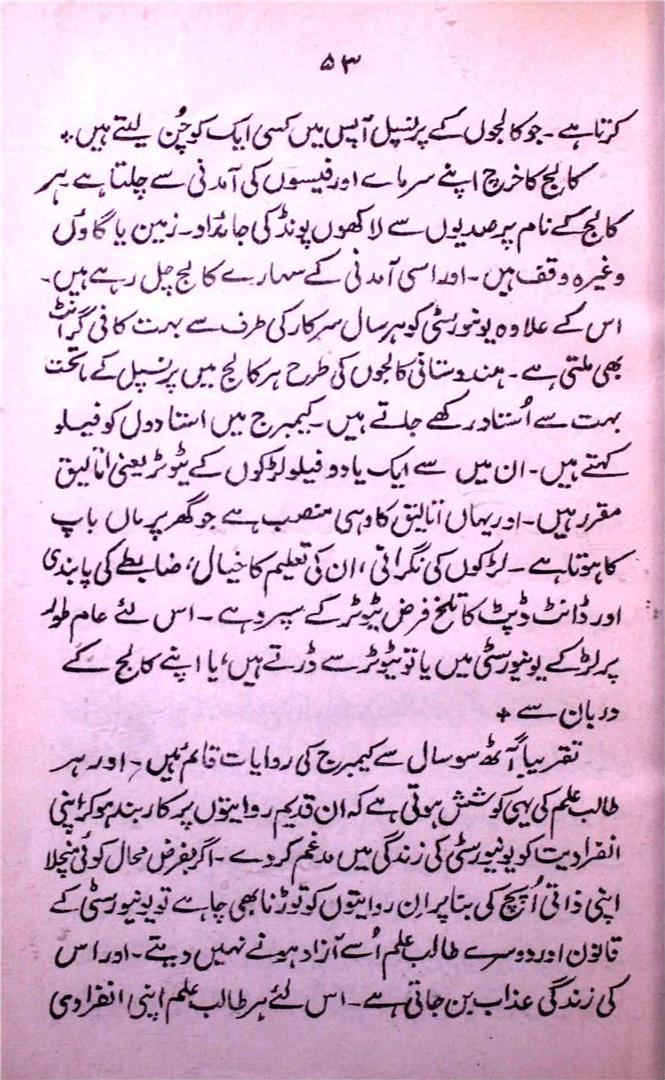 ۵۳
کرتا ہے۔ جو کالجوں کے پرنسپل آپس میں کسی ایک کو چُن لیتے ہیں۔
کالج کا خرچ اپنے سرمائے اور فیسوں کی آمدنی سے چلتا ہے ہر
کالج کے نام پر صدیوں سے لاکھوں پونڈ کی جائداد۔ زمین یا گاؤں
وغیرہ وقف ہیں۔ اور اسی آمدنی کے سہارے کالج چل رہے ہیں۔
اس کے علاوہ یونیورسٹی کو ہر سال سرکار کی طرف سے بہت کافی گرانٹ
بھی ملتی ہے۔ ہندوستانی کالجوں کی طرح ہر کالج میں پرنسپل کے ماتحت
بہت سے اُستاد رکھے جاتے ہیں۔ کیمبرج میں استادوں کو فیلو
کہتے ہیں۔ ان میں سے ایک یا دو فیلو لڑکوں کے ٹیوٹر یعنی اتالیق
مقرر ہیں۔ اور یہاں اتالیق کا وہی منصب ہے جو گھر پر ماں باپ
کا ہوتا ہے۔ لڑکوں کی نگرانی، ان کی تعلیم کا خیال، ضابطے کی پابندی
اور ڈانٹ ڈپٹ کا تلخ فرض ٹیوٹر کے سپرد ہے۔ اس لئے عام طور
پر لڑکے یونیورسٹی میں یا تو ٹیوٹر سے ڈرتے ہیں، یا اپنے کالج کے
دربان سے +
تقریباً آٹھ سو سال سے کیمبرج کی روایات قائم ہیں۔ اور ہر
طالب علم کی یہی کوشش ہوتی ہے کہ ان قدیم روایتوں پر کاربند ہو کر اپنی
انفرادیت کو یونیورسٹی کی زندگی میں مدغم کر دے۔ اگر بفرض محال کوئی منچلا
اپنی ذاتی اُپچ کی بنا پر اِن روایتوں کو توڑنا بھی چاہے تو یونیورسٹی کے
قانون اور دوسرے طالب علم اُسے آزاد ہونے نہیں دیتے۔ اور اس
کی زندگی عذاب بن جاتی ہے۔ اس لئے ہر طالب علم اپنی انفرادی